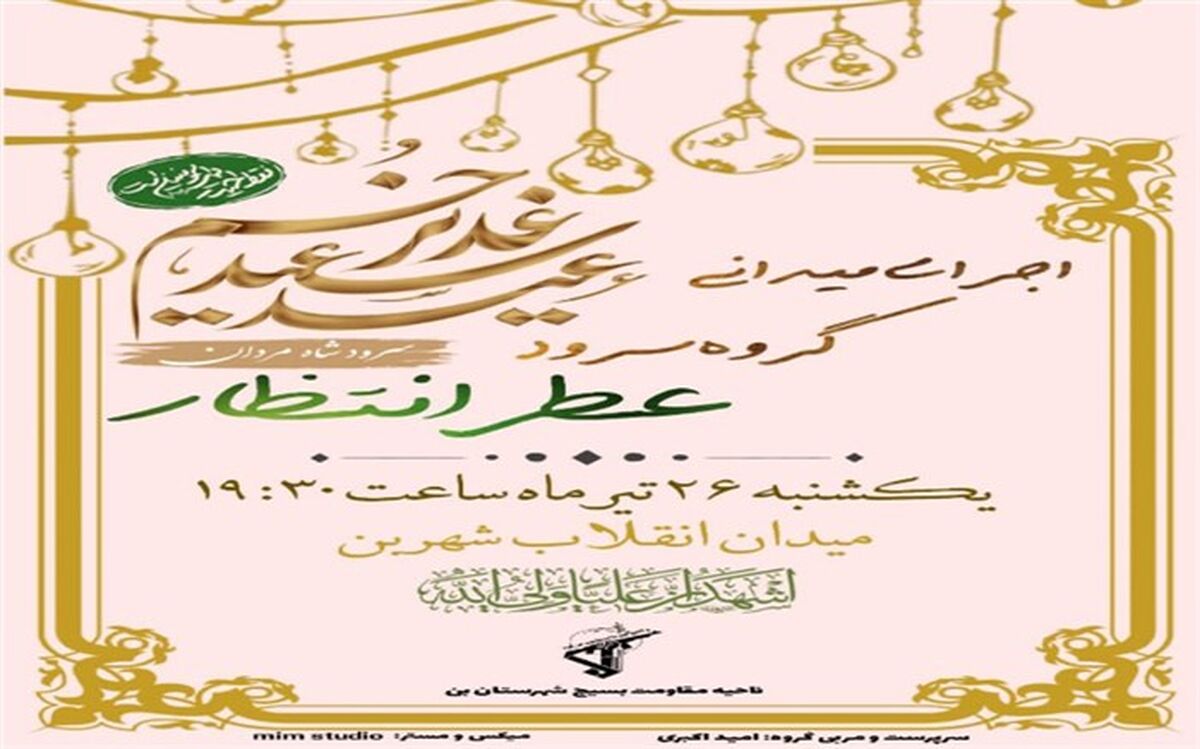 عید سعید غدیر خم
سرود شاه مردان
اجرای میدانی
گروه سرود
عطر انتظار
یکشنبه ۲۶ تیر ماه ساعت ۱۹:۳۰
میدان انقلاب شهر بن
اشهد ان علیا ولی الله
ناحیه مقاومت بسیج شهرستان بن
سرپرست و مربی گروه: امید اکبری
میکس و مستر: mim studio